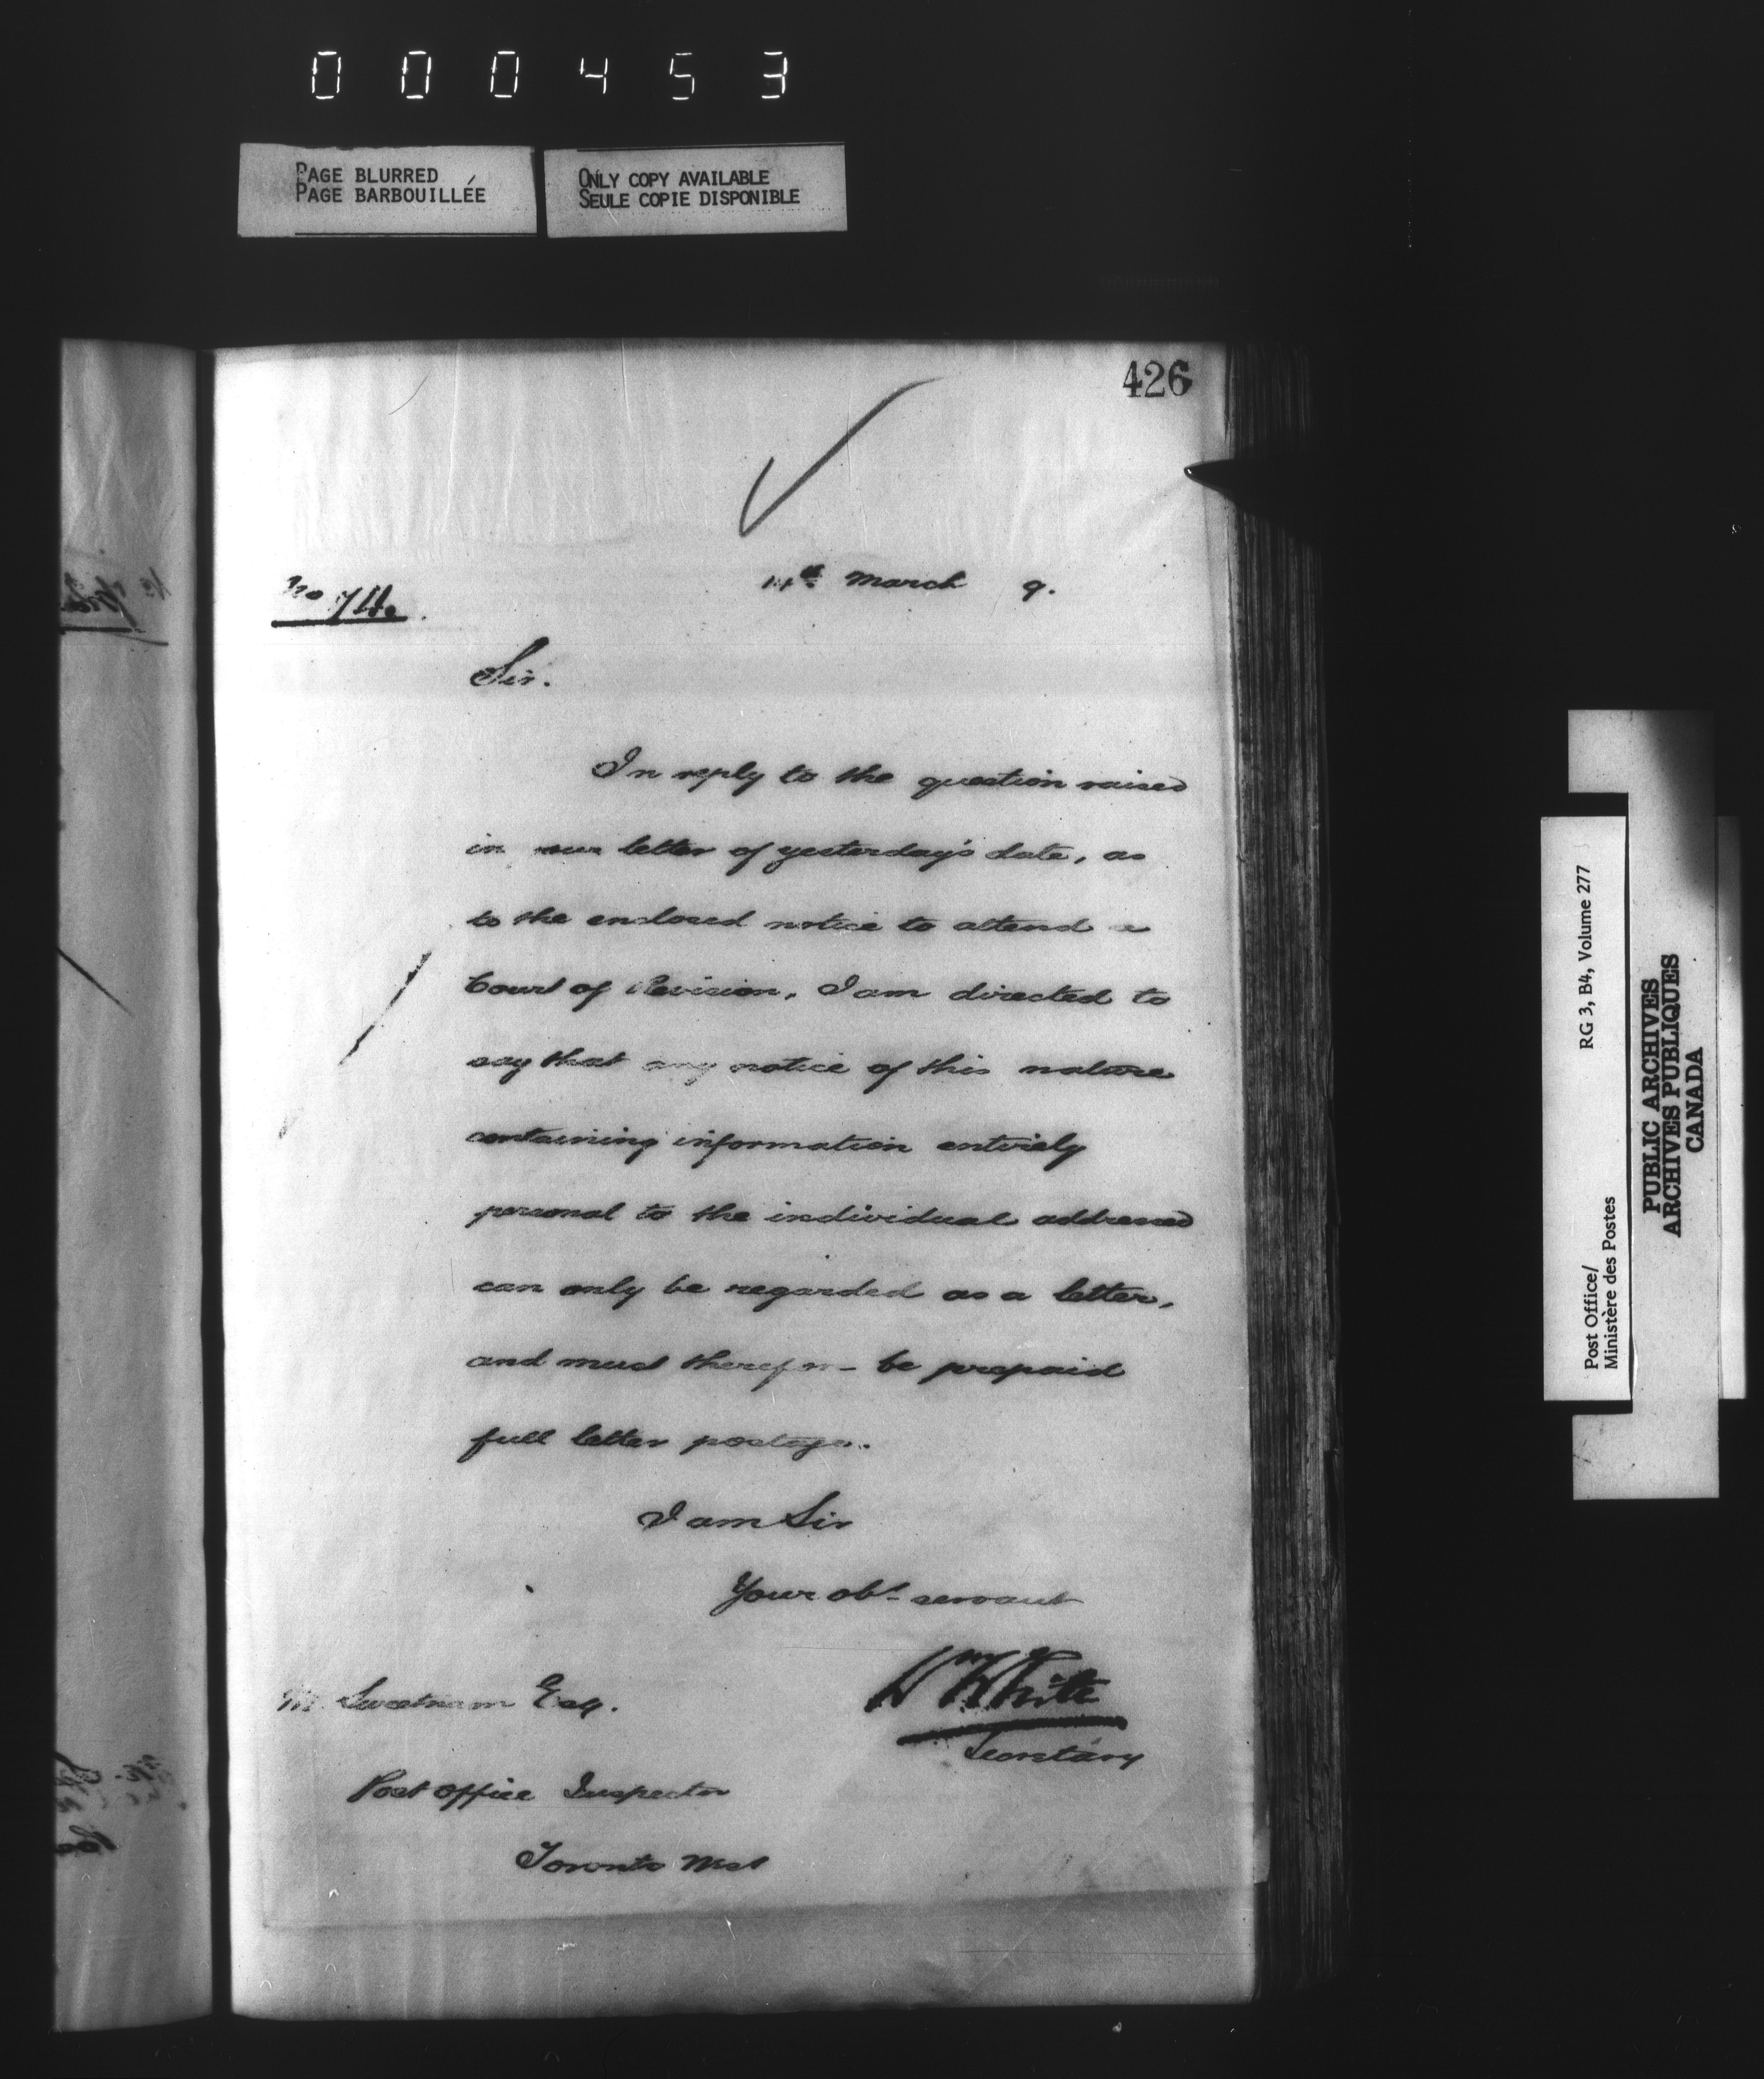 000453
PAGE BLURRED
PAGE BARBOUILLÉE
ONLY COPY AVAILABLE
SEULE COPIE DISPONIBLE
426
March 9.
No
Sir.
In reply to the question raised
in letter of yesterday's date, as
to the enclosed notice to attend a
Court of Revision, I am directed to
say that any notice of this nature
containing information entirely
personal to the individual addressed
can only be regarded as a letter,
and must therefore be prepaid
full letter postage.
I am Sir
Your obt servant
Wm White
Secretary
M. Sweetnam Esq.
Post Office Inspector
Toronto West
Post Office/
Ministère des Postes
RG 3, B4, Volume 277
PUBLIC ARCHIVES
ARCHIVES PUBLIQUES
CANADA